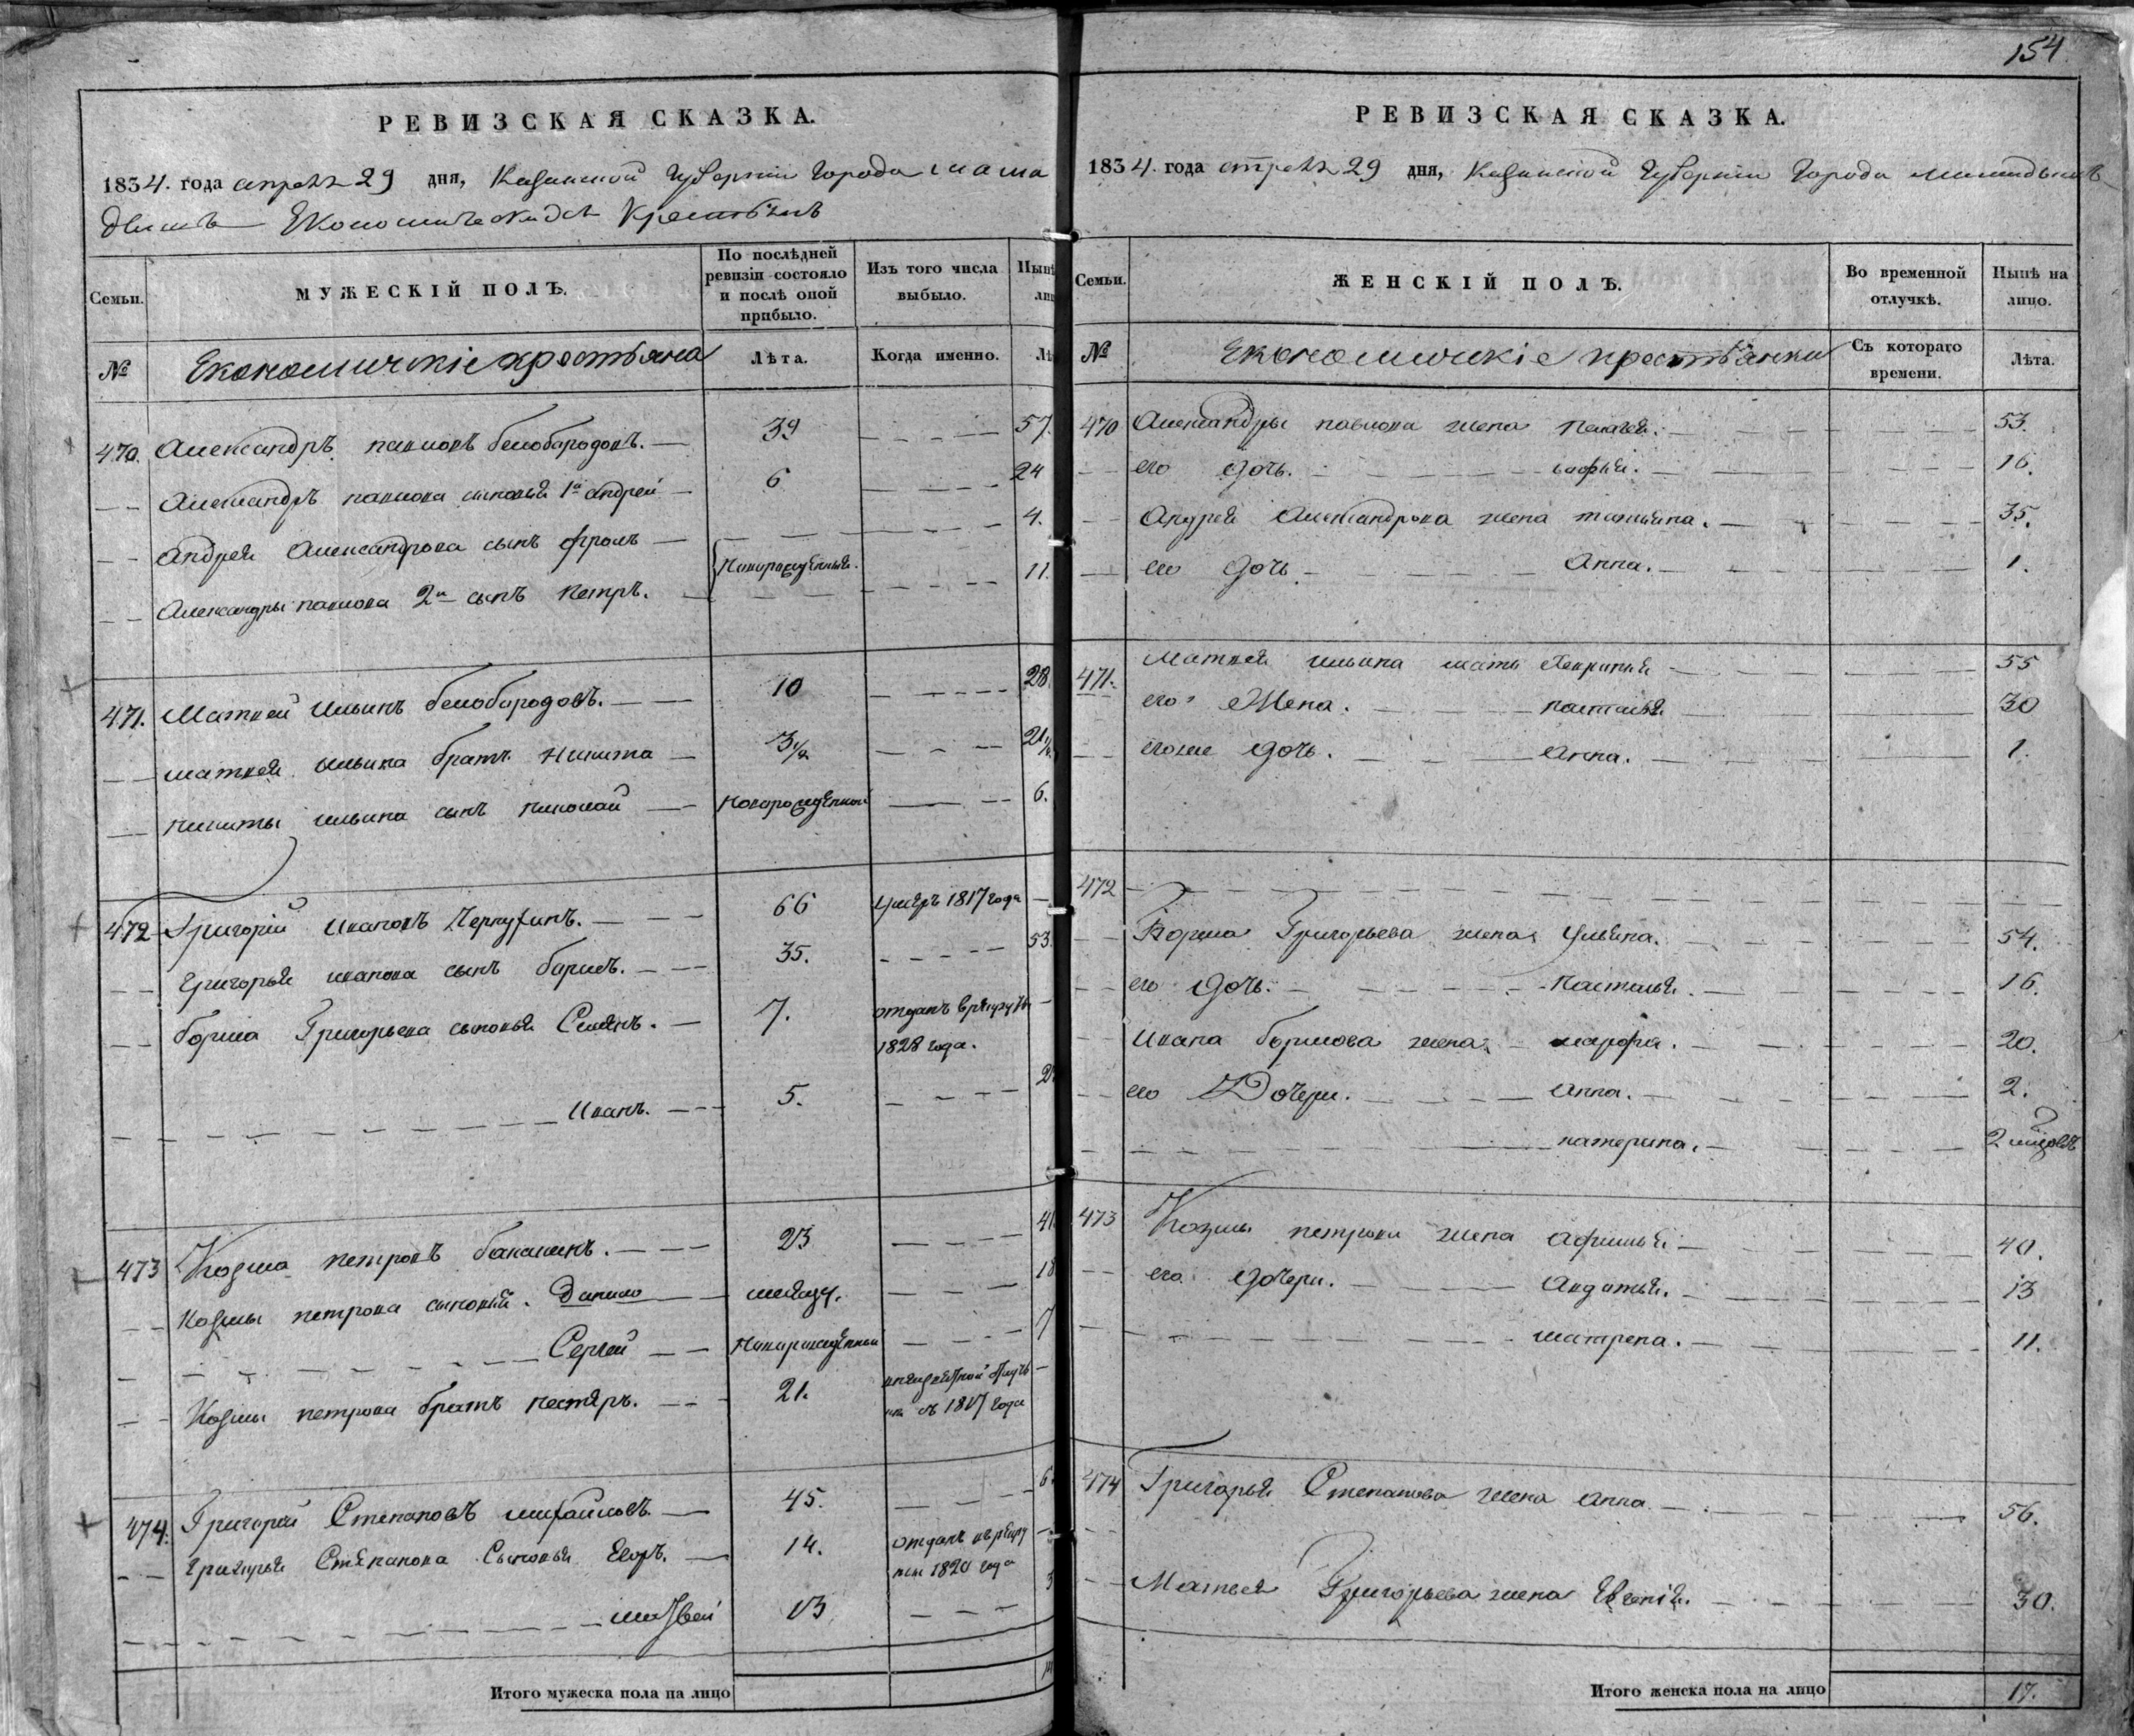 154
РЕВИЗСКАЯ СКАЗКА.
1834. года апреля 29 дня, Казанской Губернии Города мама
дышъ Экономическихъ Крестьянъ
Семьи.
МУЖЕСКІЙ ПОЛЪ.
По послѣдней ревизіи состояло и послѣ оной прибыло.
Изъ того числа выбыло.
№
Економическіе крестьяна
Лѣта.
Когда именно.
470. Александръ павловъ белобородовъ. 39 57.
Александръ павлова сыновья 1й андрей 6 24
Андрея Александрова сынъ фролъ 4.
Новорожденныя.
Александры павлова 2й сынъ петръ. 11.
471. Матвей Ильинъ белобородовъ. 10 28.
матвея ильина братъ никита 3½ 21½
никиты ильина сынъ николай новорожденной 6.
472 Григорій Ивановъ 66 умеръ 1817 года
Григорья иванова сынъ борисъ. 35. 53.
бориса Григорьева сыновья Семенъ. 7. отданъ в рекруты
1828 года.
Иванъ. 5.
473 Козма петровъ 23 41.
Козмы петрова сыновья. Данило месяцу. 18
Сергей Новорожденной 7
Козмы петрова братъ нестеръ. 21.
съ 1817 года
474. Григорей Степановъ михайловъ. 45.
Григорья Степанова Сыновья Егоръ. 14. отданъ в рекру
1820 года
матвей 13
Итого мужеска пола на лицо
РЕВИЗСКАЯ СКАЗКА.
1834. года апреля 29 дня, Казанской Губерніи Города
Семьи.
ЖЕНСКІЙ ПОЛЪ.
Во временной отлучкѣ.
Нынѣ на лицо.
№
Економическіе крестьянки
Съ котораго времени.
Лѣта.
470 Александры павлова жена пелагея. 53.
его дочь. софья. 16.
Андрея Александрова жена татьяна. 35.
его дочь Анна. 1.
471. Матвея ильина мать 55
его Жена. настасья 30
его же дочь. Анна. 1.
472
Бориса Григорьева жена Ульяна. 54.
его дочь. Настасья. 16.
Ивана борисова жена марфа. 20.
его Дочери. Анна. 2.
катерина. 2
473 Козмы петрова жена Афимья 40.
его дочери. Авдотья. 13
матрена. 11.
474 Григорья Степанова жена анна 56.
Матвея Григорьева жена Евгенія. 30.
Итого женска пола на лицо 17.